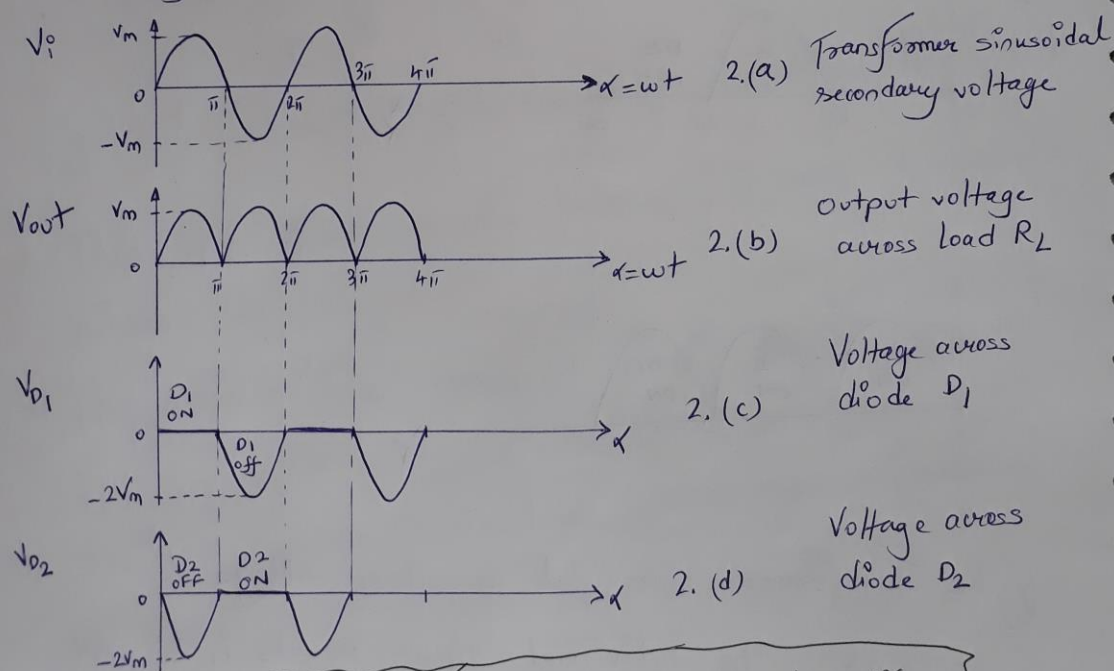 Vi
Vm
0
-Vm
π
2π
3π
4π
α=ωt
2.(a)
Transformer sinusoidal
secondary voltage
Vout
Vm
0
π
2π
3π
4π
α=ωt
2.(b)
output voltage
across load RL
VD1
D1
ON
0
D1
off
-2Vm
α
2.(c)
Voltage across
diode D1
VD2
D2
OFF
D2
ON
0
-2Vm
α
2.(d)
Voltage across
diode D2